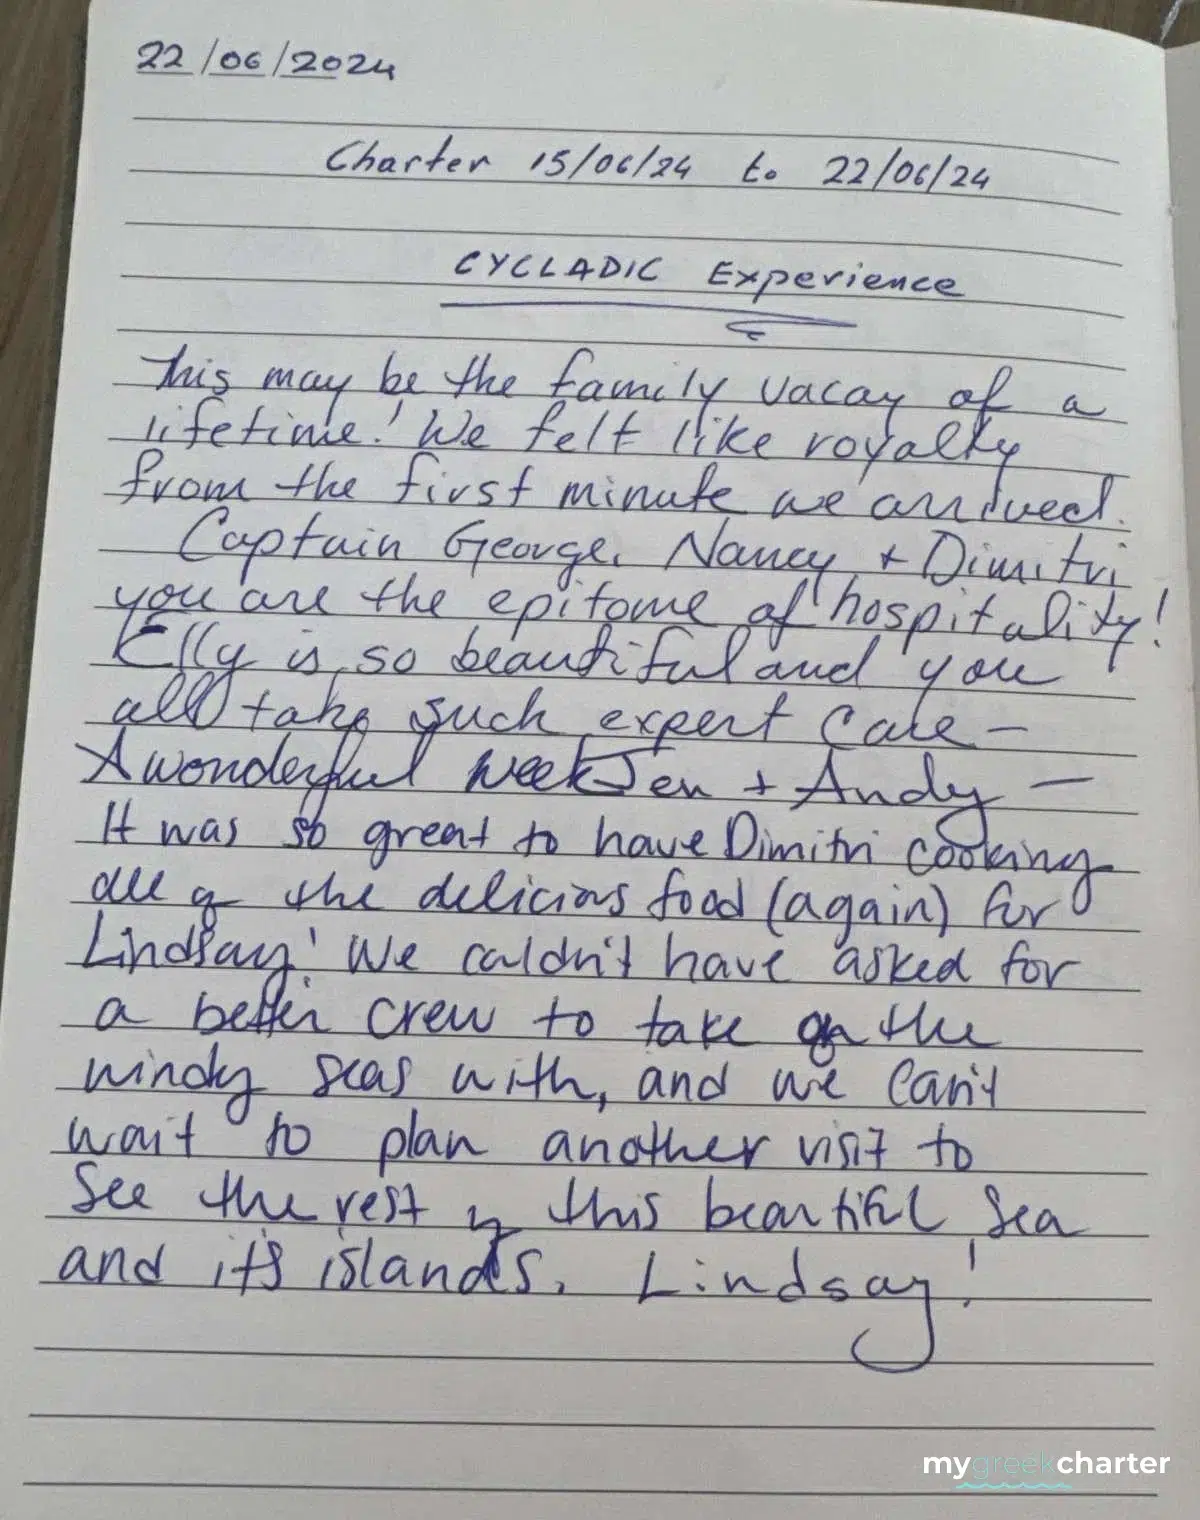 22/06/2024
Charter 15/06/24 to 22/06/24
CYCLADIC Experience
This may be the family vacay of a
lifetime! We felt like royalty
from the first minute we arrived.
Captain George, Nancy + Dimitri
you are the epitome of hospitality!
Elly is so beautiful and you
all take such expert care –
A wonderful week Jen + Andy –
It was so great to have Dimitri cooking
all of the delicious food (again) for
Lindsay! We couldn't have asked for
a better crew to take on the
windy seas with, and we can't
wait to plan another visit to
see the rest of this beautiful sea
and it's islands. Lindsay!
mygreekcharter